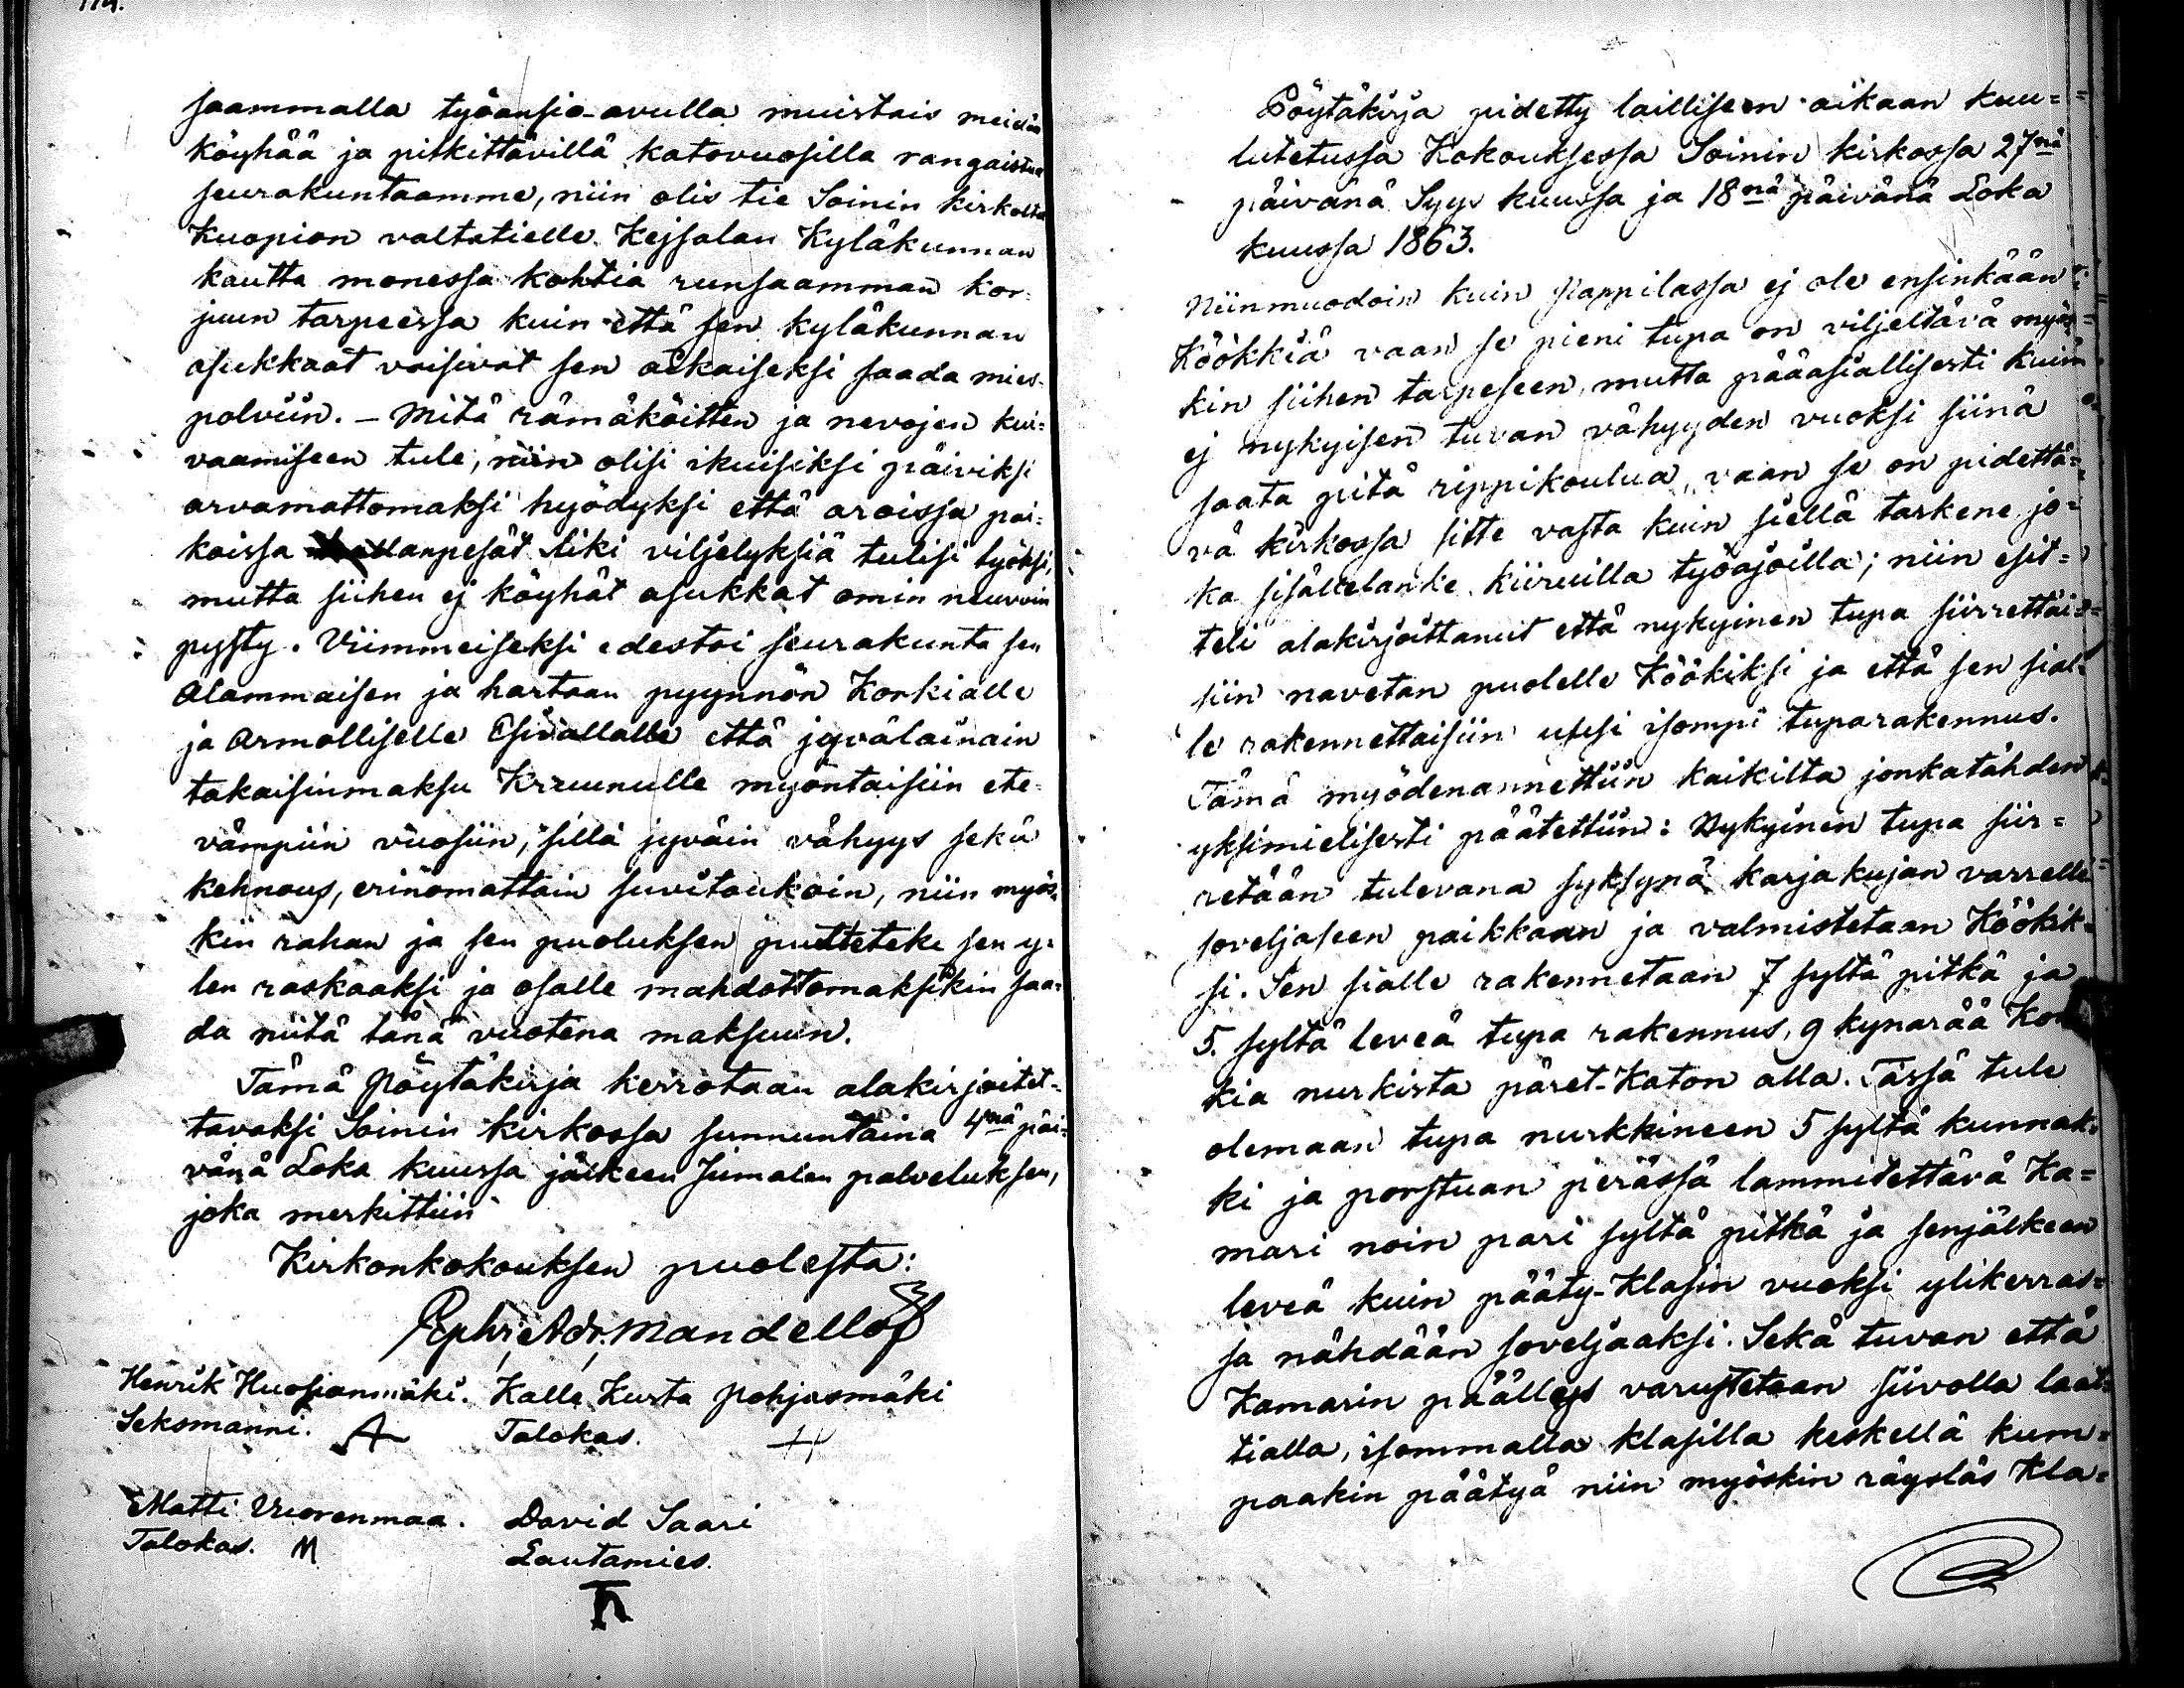 saammalla työansio-avulla muistais meidän
köyhää ja pitkittävillä katovuosilla rangaistua
seurakuntaamme, niin olis tie Soinin kirkolta
Kuopion valtatielle Kejsalan Kyläkunnan
kautta monessa kohtia runsaamman kor-
juun tarpeessa kuin että sen kyläkunnan
asukkaat voisivat sen aikaiseksi saada mies-
polviin. – Mitä rämäköitten ja nevojen kui=
vaamiseen tule, niin olisi ikuisiksi päiviksi
arvamattomaksi hyödyksi että aroissa pai=
koissa hallanpesät liki viljelyksiä tulisi työksi,
mutta siihen ej köyhät asukkat omin neuvoin
pysty. Viimmeiseksi edestoi seurakunta sen
Alammaisen ja hartaan pyynnön Korkialle
ja Armolliselle Esivallalle että jyvälainain
takaisinmaksu Kruunulle myöntaisiin ete-
vämpiin vuosiin, sillä jyväin vähyys sekä
kehnous, erinomattain suvitoukoin, niin myös-
kin rahan ja sen puoluksen puutteteke sen y-
len raskaaksi ja osalle mahdottomaksikin saa-
da niitä tänä vuotena maksuun.
Tämä Pöytäkirja kerrotaan alakirjoitet-
tavaksi Soinin kirkossa sunnuntaina 4nä päi-
vänä Loka kuussa jälkeen Jumalan palveluksen,
joka merkittiin
Kirkonkokouksen puolesta:
Ephr. Adr. Mandellöf
Henrik Huosianmäki. Kalle Kusta Pohjasmäki
Seksmanni. A Talokas.
Matti Vuorenmaa. David Saari
Talokas. M Lautamies.
Pöytäkirja pidetty lailliseen aikaan kuu=
lutetussa Kokouksessa Soinin kirkossa 27nä
päivänä Syys kuussa ja 18nä päivänä Loka
kuussa 1863.
Niinmuodoin kuin Pappilassa ej ole ensinkään
Köökkiä vaan se pieni tupa on viljeltävä myös=
kin siihen tarpeseen, mutta pääasiallisesti kuin
ej nykyisen tuvan vähyyden vuoksi siinä
saata pitä rippikoulua, vaan se on pidettä=
vä kirkossa sitte vasta kuin siellä tarkene jo=
ka sisältelanke kiiruilla työajoilla; niin esit=
teli alakirjoittanut että nykyinen tupa siirrettäi=
siin navetan puolelle Köökiksi ja että sen sial=
le rakennettaisiin uusi isompi tuparakennus.
Tämä myödenannettiin kaikilta jonkatähden
yksimielisesti päätettiin: Nykyinen tupa siir=
retään tulevana syksynä karjakujan varrelle
soveljaseen paikkaan ja valmistetaan Köökik=
si. Sen sialle rakennetaan 7 syltä pitkä ja
5. syltä leveä tupa rakennus, 9 kynärää Kor
kia nurkista päret-Katon alla. Tässä tule
olemaan tupa nurkkineen 5 syltä kunnak=
ki ja porstuan perässä lammitettävä Ka=
mari noin pari syltä pitkä ja senjälkeen
leveä kuin pääty-Klasin vuoksi ylikerras=
sa nähdään soveljaaksi. Sekä tuvan että
Kamarin päällys varustetaan siivolla laat=
tialla, isommalla klasilla keskellä kum=
paakin päätyä niin myöskin räystäs Kla=